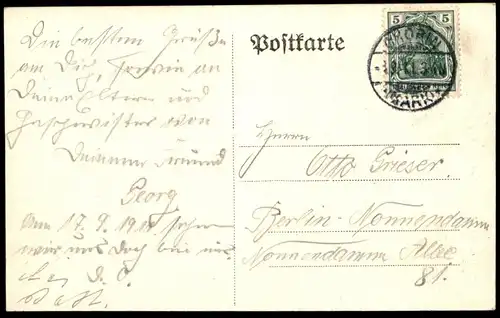 Die besten Grüße
an Dich, sowie an
Deine Eltern und
Geschwister von
Deinem Freund
Georg
Am 17. 9. 19
wir uns doch bei
Postkarte
5 5
CHORIN
(MARK)
Herrn
Otto Grieser.
Berlin-Nonnendamm
Nonnendamm Allee
81.